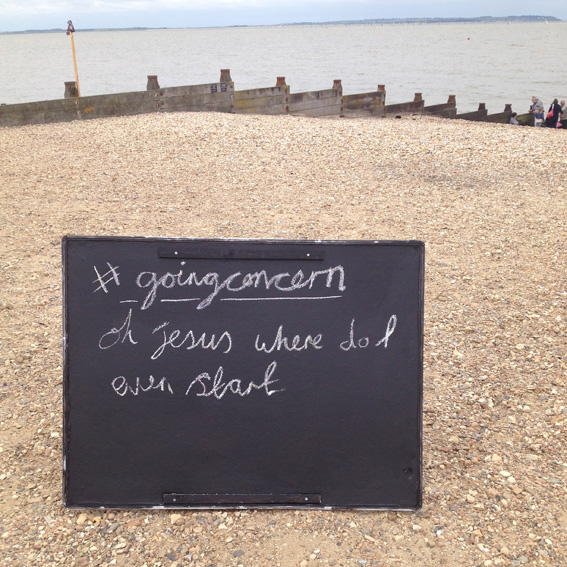 # goingconcern
oh jesus where do I
even start